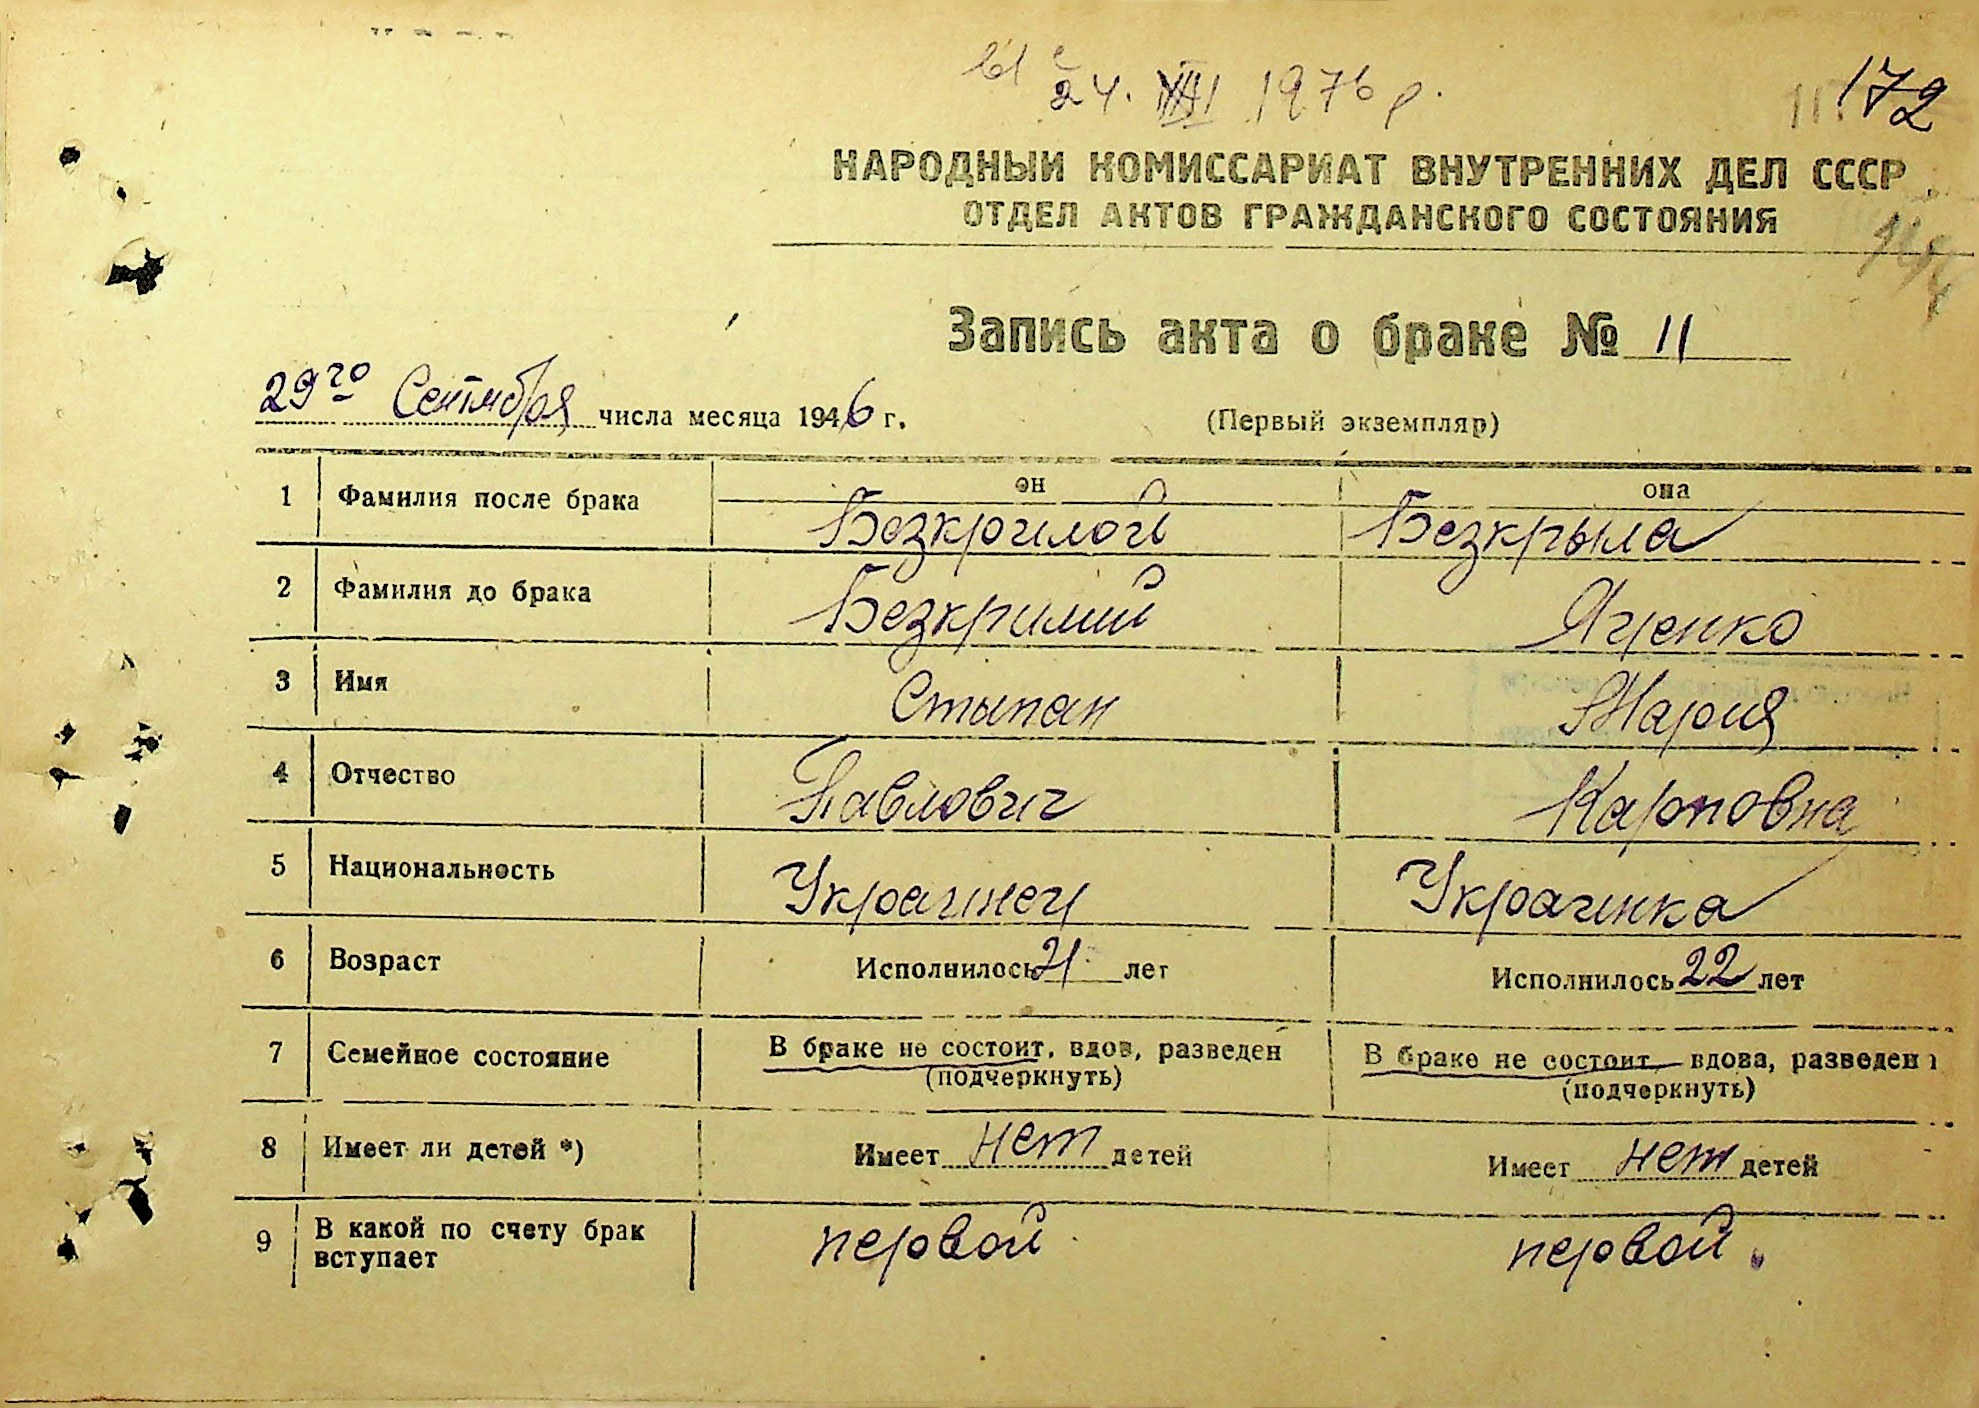 24. VIII 1976 р.
172
НАРОДНЫЙ КОМИССАРИАТ ВНУТРЕННИХ ДЕЛ СССР
ОТДЕЛ АКТОВ ГРАЖДАНСКОГО СОСТОЯНИЯ
Запись акта о браке № 11
29го Сентября числа месяца 1946 г.
(Первый экземпляр)
он она
1 Фамилия после брака Безкрилой Безкрыла
2 Фамилия до брака Безкрилий Яценко
3 Имя Стыпан Мария
4 Отчество Павлович Карповна
5 Национальность Украинец Украинка
6 Возраст Исполнилось 21 лет Исполнилось 22 лет
7 Семейное состояние В браке не состоит, вдов, разведен В браке не состоит, вдова, разведен
(подчеркнуть) (подчеркнуть)
8 Имеет ли детей *) Имеет нет детей Имеет нет детей
9 В какой по счету брак вступает первой первой